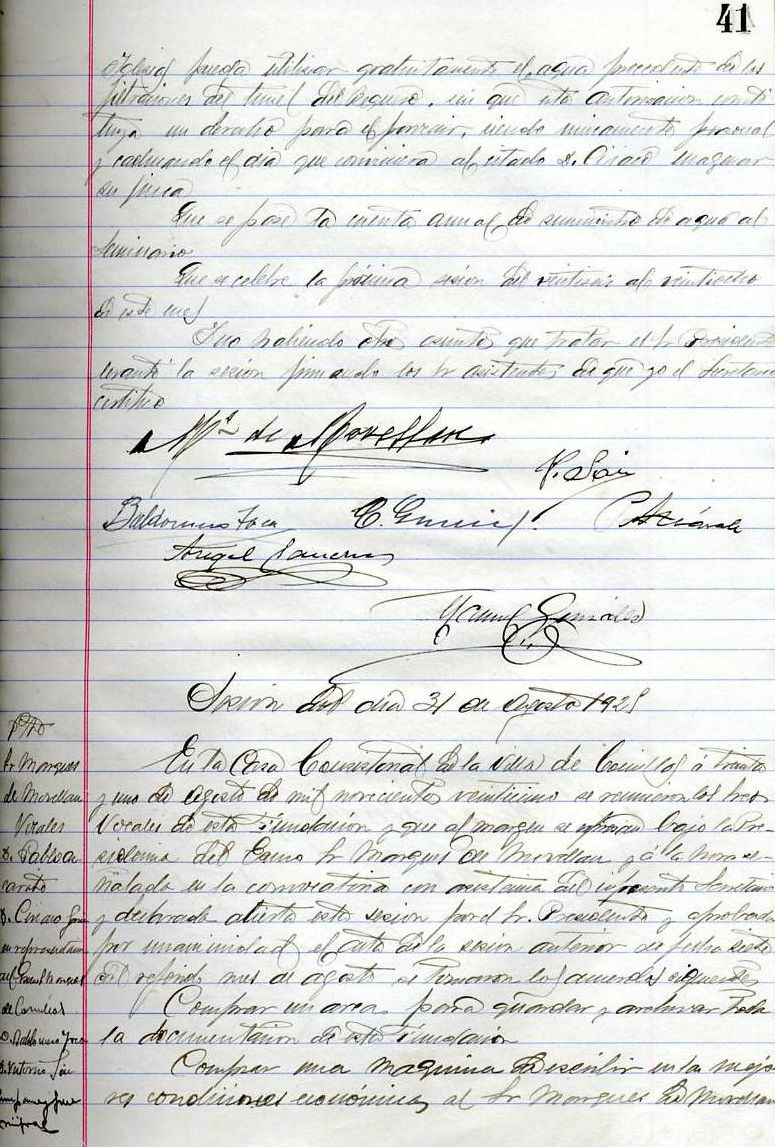 41
Iglesia pueda utilizar gratuitamente el agua procedente de las
filtraciones del tunel del sin que esta autorizacion consti
tuya un derecho para el porvenir, siendo unicamente personal
y caducando el dia que conviniera al citado D. Ciriaco enagenar
su finca
Que se pase la cuenta anual de suministro de agua al
Seminario
Que se celebre la próxima sesion del veintiseis al veintiocho
de este mes
Y no habiendo otros asuntos que tratar el Sr Presidente
levantó la sesion firmando los Sr asistentes de que yo el Secretario
certifico
M. de Movellan
V. Sán
Baldomero Foca
Angel
Manuel González
Sesion del dia 31 de agosto 1921
En la Casa Consistorial de la Villa de Comillas á treinta
y uno de agosto de mil novecientos veintiuno se reunieron los Sres
Vocales de esta fundación y que al margen se espresan bajo la Pre
sidencia del Excmo Sr Marques de Movellan y á la hora se-
ñalada en la convocatoria con asistencia del infrascrito Secretario
y declarada abierta esta sesion por el Sr. Presidente y aprobada
por unanimidad el acta de la sesion anterior de fecha siete
del referido mes de agosto se tomaron los acuerdos siguientes
Comprar un arca para guardar y archivar toda
la documentacion de esta fundacion
Comprar una maquina de escribir en las mejo
res condiciones económicas al Sr Marques de Movellan
Sr Marques
de Movellan
Vocales
D. Pablo
D. Ciriaco
en representacion
del Excmo Marques
de Comillas
D. Baldomero Foca
D. Antonio